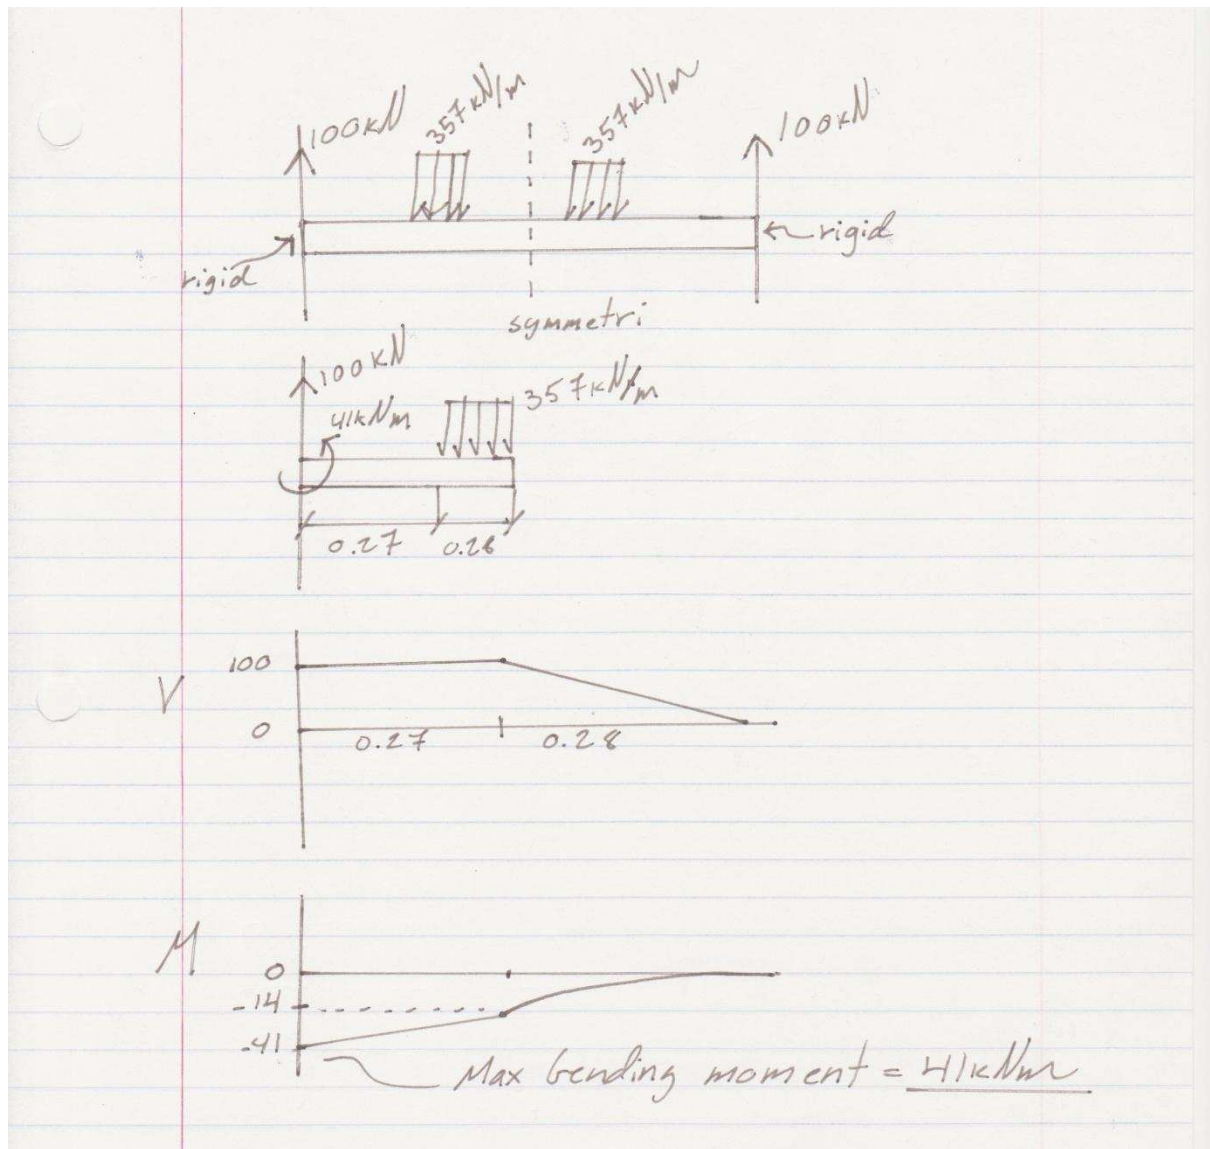 100kN 357kN/m 357kN/m 100kN
rigid rigid
symmetri
100kN
357kN/m
41kNm
0.27 0.28
V
100
0
0.27 0.28
M
0
-14
-41
Max bending moment = 41kNm